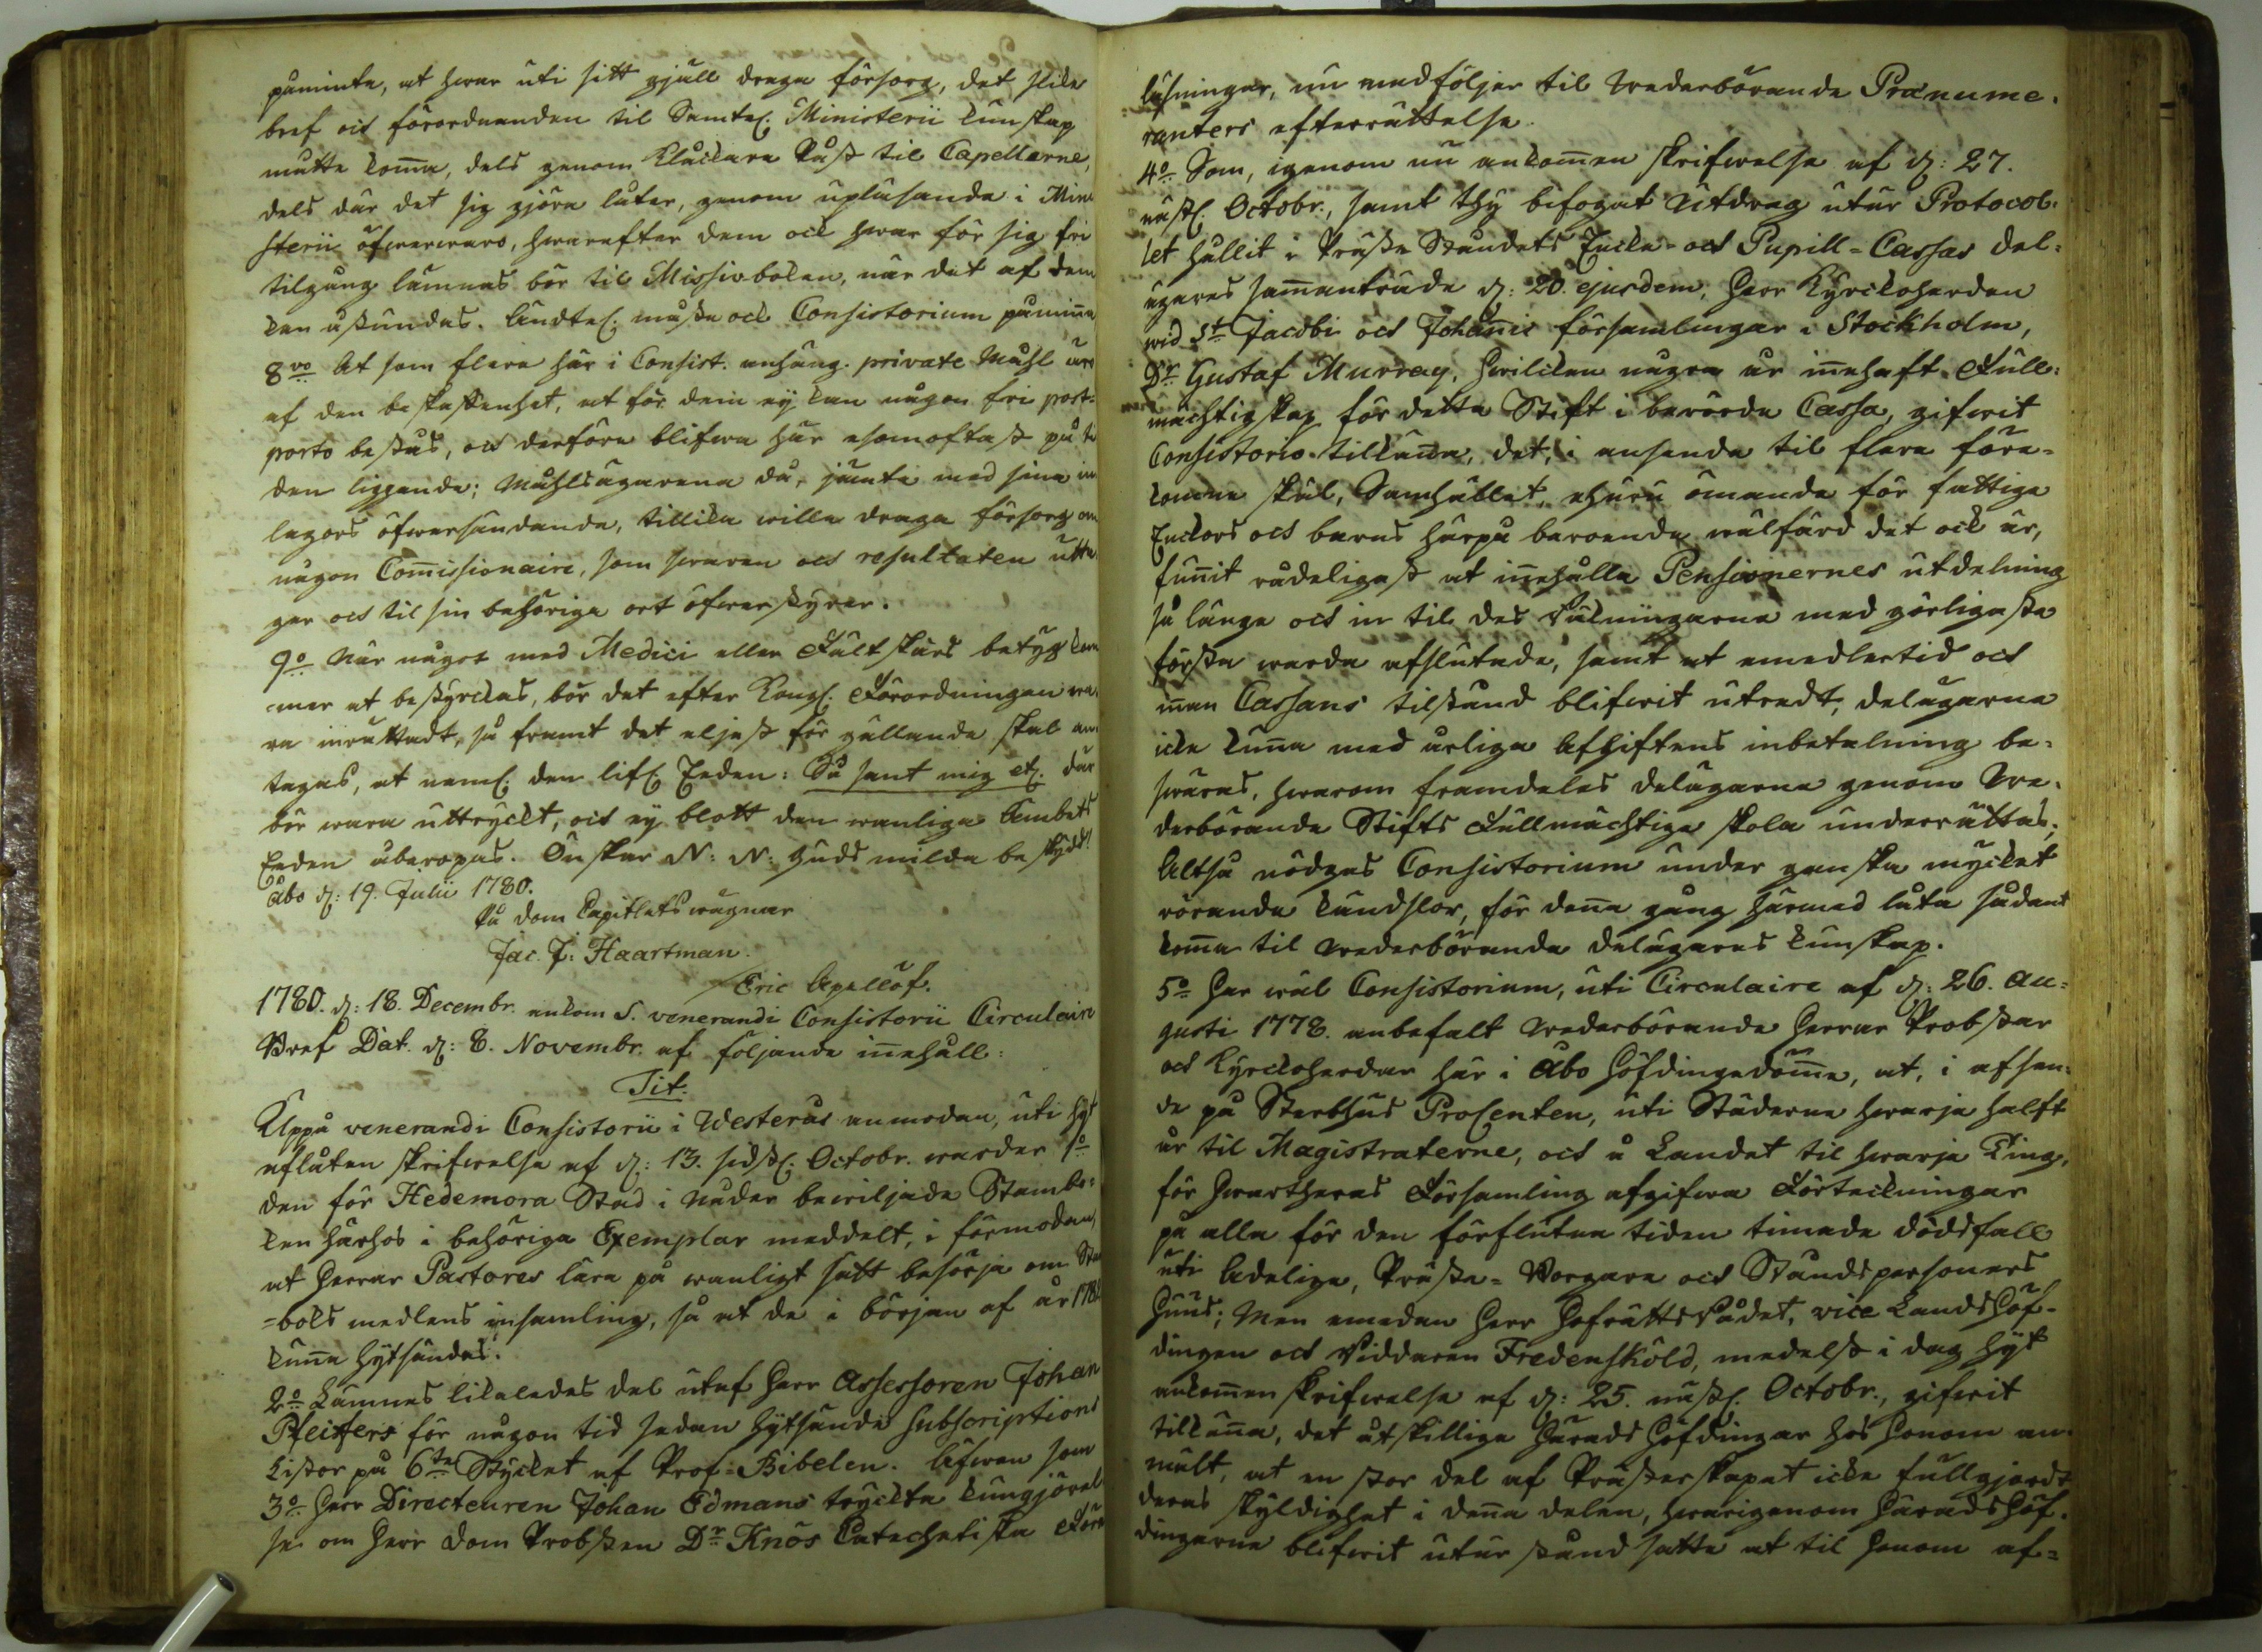 påminte, at hwar uti sitt gjäll draga försorg, det slike
bref och förordnanden til Samtel. Ministerii kunskap
måtte kom̄a, dels genom Klåckare Påst til Capellarne,
dels där det sig gjöra låter, genom upläsande i Mini
sterii öfwerwaro, hwarefter dem ock hwar för sig fri
tilgång lämnas bör til Missivboken, när det af dem
kan åstundas. Ändtel. måste ock Consistorium påmin̄a
8vo At som flere här i Consist. anhäng. private Måhl äro
af den beskaffenhet, at för dem ej kan någon fri post-
porto bestås, och derföre blifwa här esomoftast på ti
den liggande; Målsägarena då, jämte med sina in
lagors öfwersändande, tillika wille draga försorg om
någon Com̄issionaire, som swaren och resultaten utta
ger och til sin behöriga ort öfwerstyrer.
9o När något med Medici eller Fältskärs betyg kom
mer at bestyrckas, bör det efter Kongl. Förordningen wa
ra inrättadt, så framt det eljest för gällande skal an
tagas, at neml. den lifl. Eeden: Så sant mig etc. där
bör wara uttryckt, och ej blott den wanliga Ämbets
Eeden åberopas. Önskar N: N: Guds milda beskydd!
Åbo d: 19. Julii 1780.
På Dom Capitlets wägnar
Jac. J: Haartman.
Eric Apellöf.
1780. d: 18. Decembr. ankom S. venerandi Consistorii Circulaire
Bref Dat. d: 8. Novembr. af följande in̄ehåll:
Tit.
Uppå venerandi Consistorii i Westerås anmodan, uti hit
aflåten skrifwelse af d: 13. sidstl. Octobr. warder 1o
den för Hedemora Stad i Nåder bewiljade Stambo-
ken härhos i behöriga Exemplar meddelt, i förmodan,
at Herrar Pastores lära på wanligt sätt besörja om Stam
=boks medlens insamling, så at de i början af år 1781
kun̄a hijtsändas.
2o Lämnas likaledes del utaf Herr Assessoren Johan
Pfeiffers för någon tid sedan hijtsände Subscriptions
Listor på 6te Stycket af Prof-Bibelen. Äfwen som
3o Herr Directeuren Johan Edmans tryckte kungjörel
se om Herr Dom Probsten Dr Knös Catechetiska Före
läsningar, nu medföljer til wederbörande Prænume-
ranters efterrättelse.
4o Som, igenom nu ankom̄en skrifwelse af d: 27.
nästl. Octobr., samt thy bifogat Utdrag utur Protocol-
let hållit i Präste Ståndets Encke- och Pupill-Cassas del-
ägares sam̄anträde d: 20. ejusdem, Herr Kyrckoherden
wid St Jacobi och Johan̄is församlingar i Stockholm,
Dr Gustaf Murray, hwilcken någre år in̄ehaft Full-
mächtigskap för detta Stift i berörde Cassa, gifwit
Consistorio tillkän̄a, det, i anseende til flera före-
komne skäl, Samhället, ehuru ömande för fattiga
Enckors och barns härpå beroende wälfärd det ock är,
fun̄it rådeligast at in̄ehålla Pensionernes utdelning
så länge och in til des Räkningarne med görligaste
första warda afslutade, samt at emedlertid och
in̄an Cassans tilstånd blifwit utredt, delägarne
icke kun̄a med årliga Afgiftens inbetalning be-
swäras, hwarom framdeles delägarne genom We-
derbörande Stifts Fullmächtige skola underrättas;
Altså nödgas Consistorium under ganska mycket
rörande kändslor, för den̄a gång härmed låta sådant
kom̄a til wederbörande delägares kunskap.
5o Har wäl Consistorium, uti Circulaire af d: 26. Au-
gusti 1778. anbefalt wederbörande Herrar Probstar
och Kyrckoherdar här i Åbo Höfdingedöm̄e, at, i afseen-
de på Sterbhus Procenten, uti Städerne hwarje halft
år til Magistraterne, och å Landet til hwarje Ting,
för hwartheras Församling afgifwa Förteckningar
på alla för den förflutna tiden timade dödsfall
uti Adelige, Präste- Borgare och Ståndspersoners
Huus; Men emedan Herr Hofrätts Rådet, vice Landshöf-
dingen och Riddaren Fredenskiöld, medelst i dag hijt
ankom̄en skrifwelse af d: 25. nästl. Octobr., gifwit
tilkän̄a, det åtskillige Härads Höfdingar hos honom an-
mält, at en stor del af Prästerskapet icke fullgjordt
deras skyldighet i den̄a delen, hwarigenom Häradshöf-
dingarne blifwit utur stånd satte at til honom af-